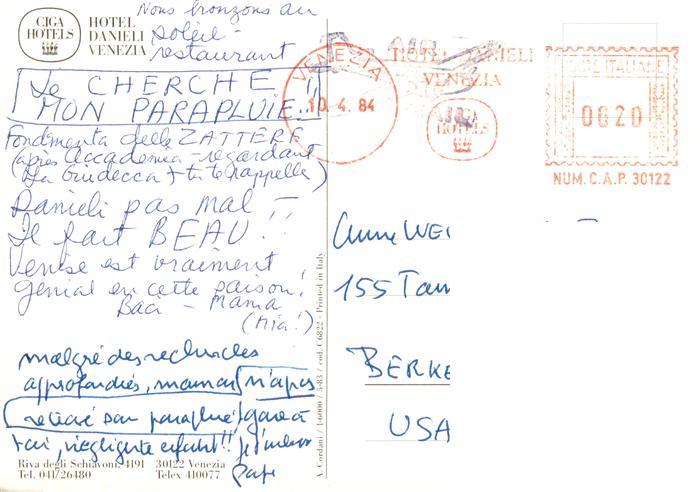 CIGA
HOTELS
HOTEL
DANIELI
VENEZIA
Nous bronzons au
soleil -
restaurant
Je CHERCHE
MON PARAPLUIE..!!
Fondmenta delle ZATTERE
(après Accademia - regardant
la Giudecca + tu te rappelles)
Danieli pas mal --
Il fait BEAU !!
Venise est vraiment
genial en cette saison!
Baci - Mama
(mia!)
malgré des recherches
approfondies, maman n'a pas
retrouvé son parapluie gare à
toi, négligente enfant!!
Papa
Riva degli Schiavoni, 4191 30122 Venezia
Tel. 041/26480 Telex 410077
A. Cordani / 16000 / 3-83 / cod. C6822 - Printed in Italy
VENEZIA
10.4.84
HOTEL DANIELI
VENEZIA
CIGA
HOTELS
POSTE ITALIANE
0620
NUM. C.A.P. 30122
Anne WEI
155 Tam
BERKE
USA